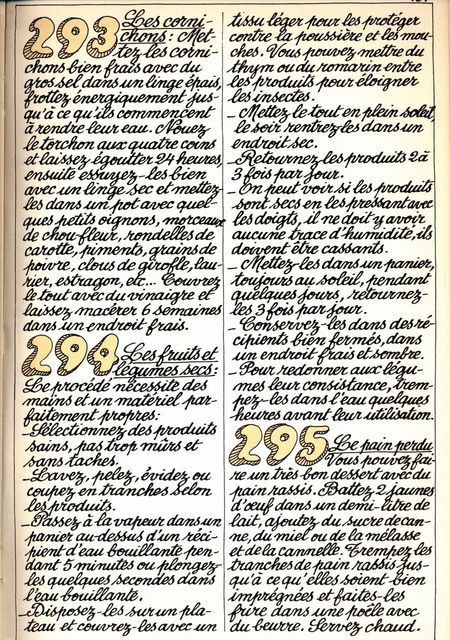 293 Les corni-
chons : Met-
tez les corni-
chons bien frais avec du
gros sel dans un linge épais,
frottez énergiquement jus-
qu'à ce qu'ils commencent
à rendre leur eau. Nouez
le torchon aux quatre coins
et laissez égoutter 24 heures,
ensuite essuyez-les bien
avec un linge sec et mettez-
les dans un pot avec quel-
ques petits oignons, morceaux
de chou-fleur, rondelles de
carotte, piments, grains de
poivre, clous de girofle, lau-
rier, estragon, etc... Couvrez
le tout avec du vinaigre et
laissez macérer 6 semaines
dans un endroit frais.
294 Les fruits et
légumes secs :
Le procédé nécessite des
mains et un matériel par-
faitement propres :
_ Sélectionnez des produits
sains, pas trop mûrs et
sans taches.
_ Lavez, pelez, évidez ou
coupez en tranches selon
les produits.
_ Passez à la vapeur dans un
panier au-dessus d'un réci-
pient d'eau bouillante pen-
dant 5 minutes ou plongez-
les quelques secondes dans
l'eau bouillante.
_ Disposez-les sur un pla-
teau et couvrez-les avec un
tissu léger pour les protéger
contre la poussière et les mou-
ches. Vous pouvez mettre du
thym ou du romarin entre
les produits pour éloigner
les insectes.
_ Mettez le tout en plein soleil,
le soir rentrez-les dans un
endroit sec.
_ Retournez les produits 2 à
3 fois par jour.
_ On peut voir si les produits
sont secs en les pressant avec
les doigts, il ne doit y avoir
aucune trace d'humidité, ils
doivent être cassants.
_ Mettez-les dans un panier,
toujours au soleil, pendant
quelques jours, retournez-
les 3 fois par jour.
_ Conservez-les dans des ré-
cipients bien fermés, dans
un endroit frais et sombre.
_ Pour redonner aux légu-
mes leur consistance, trem-
pez-les dans l'eau quelques
heures avant leur utilisation.
295 Le pain perdu
Vous pouvez fai-
re un très bon dessert avec du
pain rassis. Battez 2 jaunes
d'œuf dans un demi-litre de
lait, ajoutez du sucre de can-
ne, du miel ou de la mélasse
et de la cannelle. Trempez les
tranches de pain rassis jus-
qu'à ce qu'elles soient bien
imprégnées et faites-les
frire dans une poêle avec
du beurre. Servez chaud.